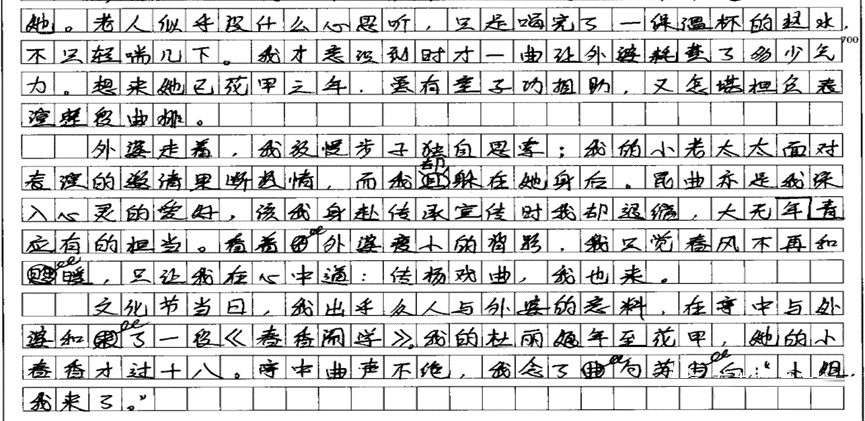 她。老人似乎没什么心思听，只是喝完了一保温杯的热水，
不只轻喘几下。我才意识到时才一曲让外婆耗费了多少气
700
力。想来她已花甲之年，虽有童子功相助，又怎堪担负表
演整段曲排。
外婆走着，我放慢步子独自思索；我的小老太太面对
却
表演的邀请果断热情，而我躲在她身后。昆曲亦是我深
入心灵的爱好，该我身赴传承宣传时我却退缩，大无青年
应有的担当。看着外婆瘦小的背影，我只觉春风不再和
暖，只让我在心中道：传扬戏曲，我也来。
文化节当日，我出乎众人与外婆的意料，在亭中与外
婆和了一段《春香闹学》。我的杜丽娘年至花甲，她的小
春香才过十八。亭中曲声不绝，我念了句苏白：“小姐，
我来了。”